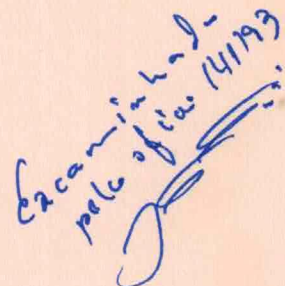 Encaminhado
pelo ofício 141/93